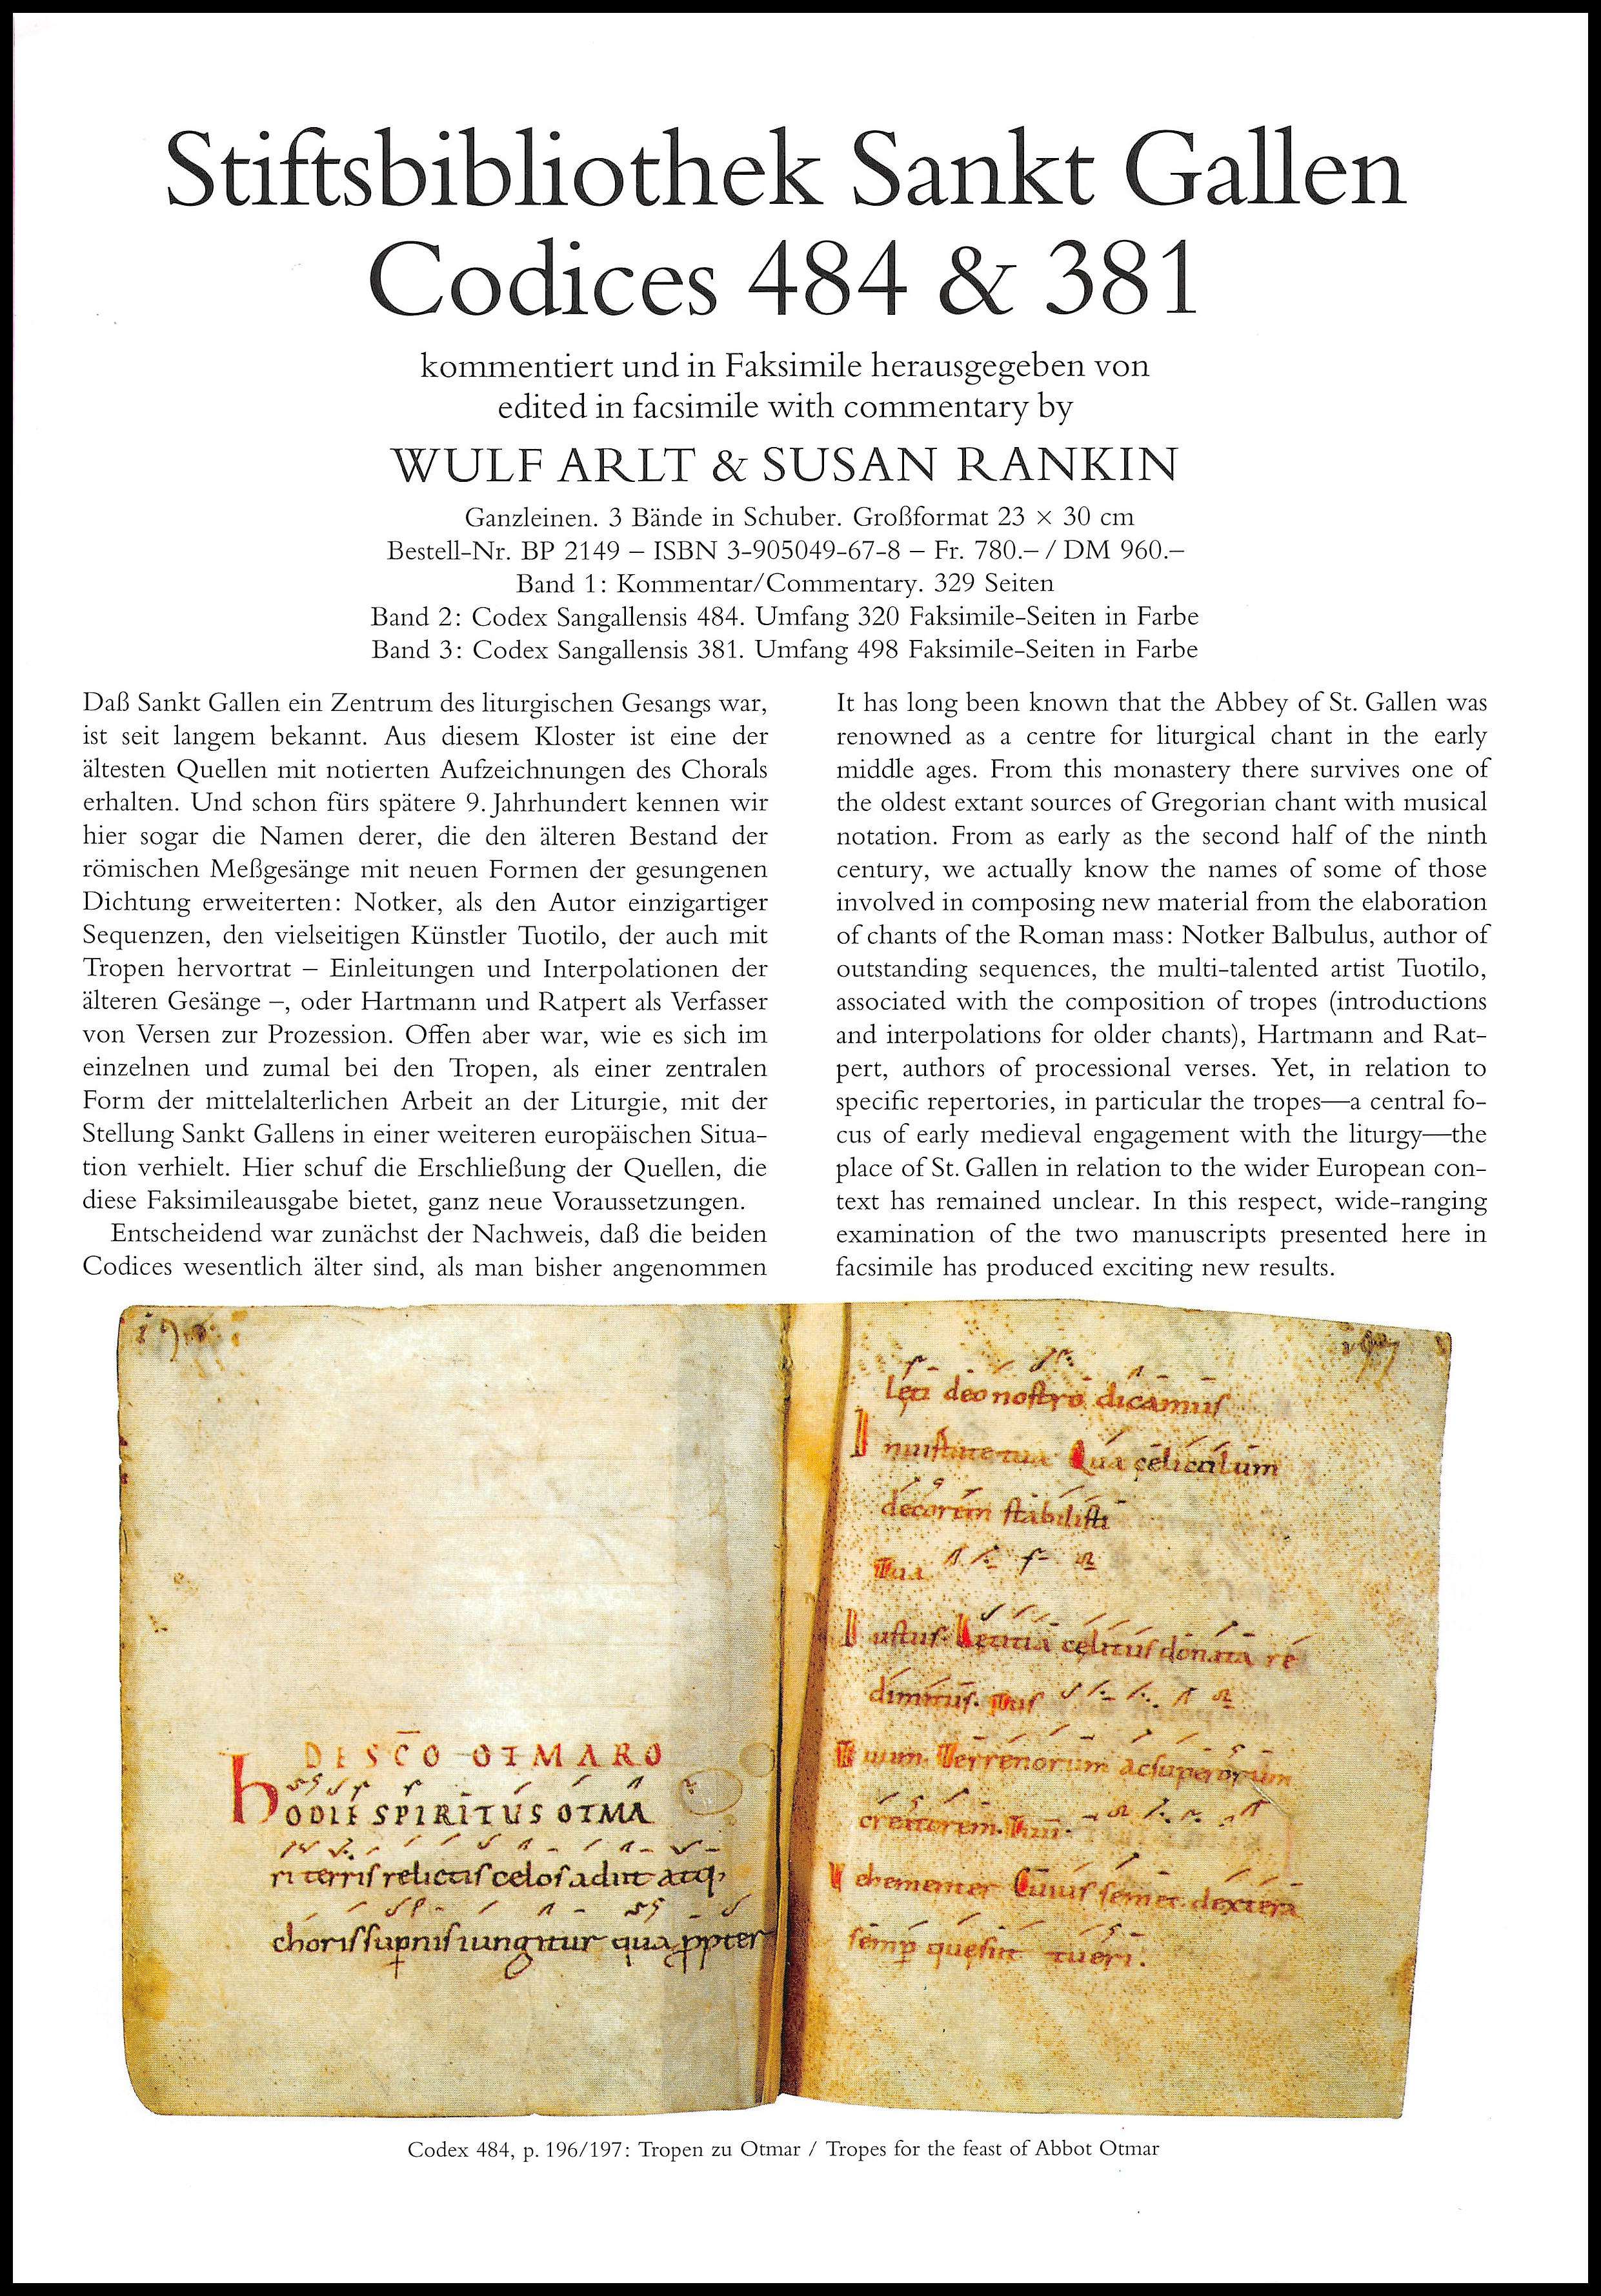 Stiftsbibliothek Sankt Gallen
Codices 484 & 381
kommentiert und in Faksimile herausgegeben von
edited in facsimile with commentary by
WULF ARLT & SUSAN RANKIN
Ganzleinen. 3 Bände in Schuber. Großformat 23 × 30 cm
Bestell-Nr. BP 2149 – ISBN 3-905049-67-8 – Fr. 780.– / DM 960.–
Band 1: Kommentar/Commentary. 329 Seiten
Band 2: Codex Sangallensis 484. Umfang 320 Faksimile-Seiten in Farbe
Band 3: Codex Sangallensis 381. Umfang 498 Faksimile-Seiten in Farbe
Daß Sankt Gallen ein Zentrum des liturgischen Gesangs war,
ist seit langem bekannt. Aus diesem Kloster ist eine der
ältesten Quellen mit notierten Aufzeichnungen des Chorals
erhalten. Und schon fürs spätere 9. Jahrhundert kennen wir
hier sogar die Namen derer, die den älteren Bestand der
römischen Meßgesänge mit neuen Formen der gesungenen
Dichtung erweiterten: Notker, als den Autor einzigartiger
Sequenzen, den vielseitigen Künstler Tuotilo, der auch mit
Tropen hervortrat – Einleitungen und Interpolationen der
älteren Gesänge –, oder Hartmann und Ratpert als Verfasser
von Versen zur Prozession. Offen aber war, wie es sich im
einzelnen und zumal bei den Tropen, als einer zentralen
Form der mittelalterlichen Arbeit an der Liturgie, mit der
Stellung Sankt Gallens in einer weiteren europäischen Situa-
tion verhielt. Hier schuf die Erschließung der Quellen, die
diese Faksimileausgabe bietet, ganz neue Voraussetzungen.
Entscheidend war zunächst der Nachweis, daß die beiden
Codices wesentlich älter sind, als man bisher angenommen
It has long been known that the Abbey of St. Gallen was
renowned as a centre for liturgical chant in the early
middle ages. From this monastery there survives one of
the oldest extant sources of Gregorian chant with musical
notation. From as early as the second half of the ninth
century, we actually know the names of some of those
involved in composing new material from the elaboration
of chants of the Roman mass: Notker Balbulus, author of
outstanding sequences, the multi-talented artist Tuotilo,
associated with the composition of tropes (introductions
and interpolations for older chants), Hartmann and Rat-
pert, authors of processional verses. Yet, in relation to
specific repertories, in particular the tropes—a central fo-
cus of early medieval engagement with the liturgy—the
place of St. Gallen in relation to the wider European con-
text has remained unclear. In this respect, wide-ranging
examination of the two manuscripts presented here in
facsimile has produced exciting new results.
DE SCŌ OTMARO
hODIE SPIRITUS OTMA
ri terris relictis celos adiit atq,
choris supnis iungitur qua ppter
Lęti deo nostro dicamus
In
tua Qua cęlicolum
decorem stabilisti
Tua
Iustus. Lętitia cęlitus donata re
dimitus.
Terrenorum ac superorum
creatorem.
Vehementer Cuius semet dextera
semp quesiit tueri.
Codex 484, p. 196/197: Tropen zu Otmar / Tropes for the feast of Abbot Otmar